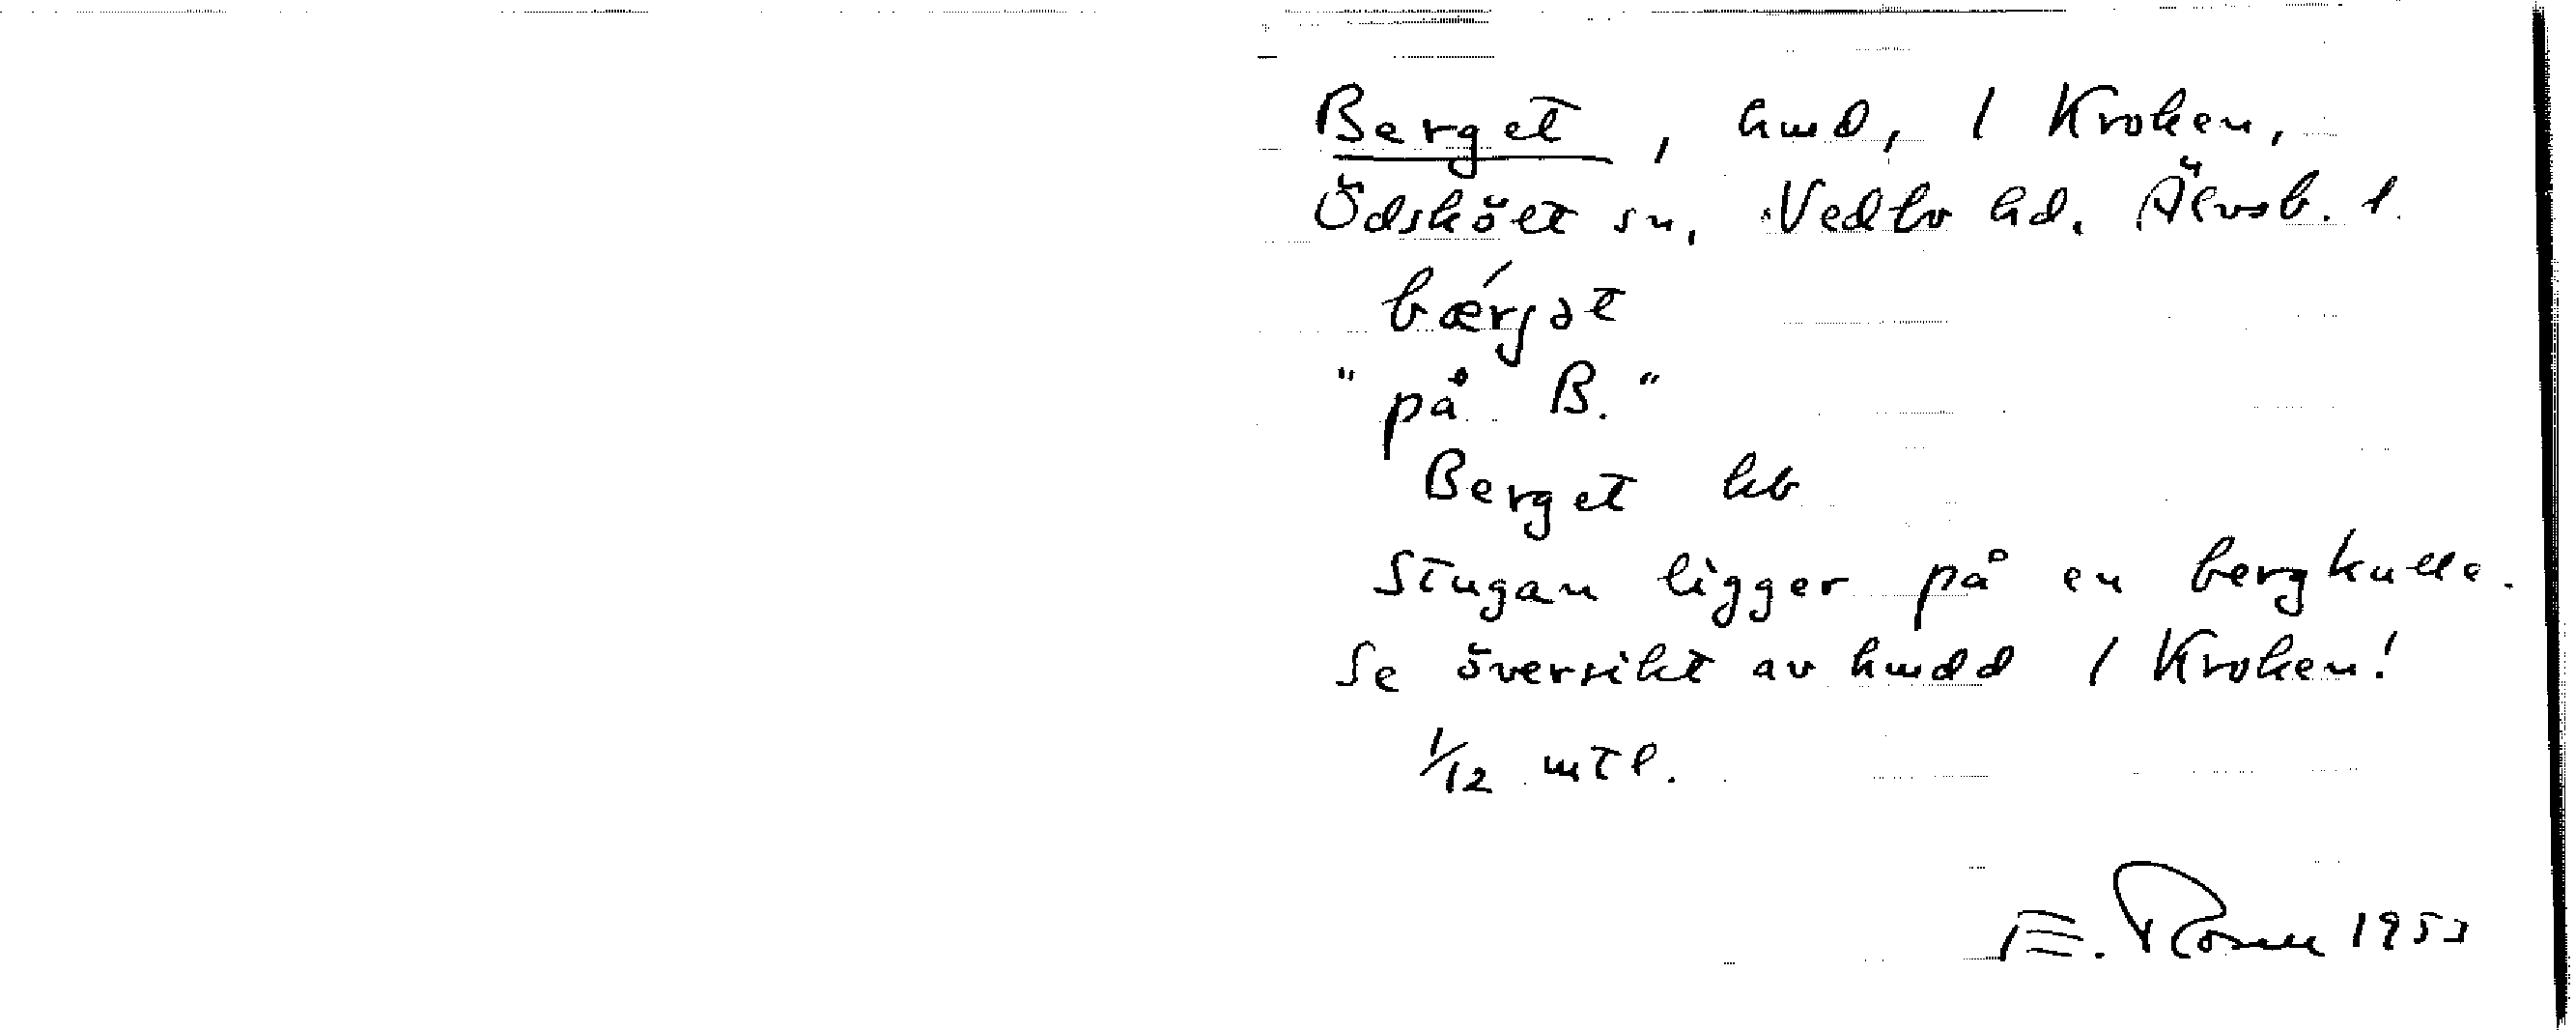 Berget, hmd, 1 Kroken,
Ödskölt sn, Vedbo hd. Älvsb. l.
bærjət
"på B."
Berget kb
Stugan ligger på en bergkulle.
Se översikt av hmdd 1 Kroken!
1/12 mtl.
E. Rosell 1953